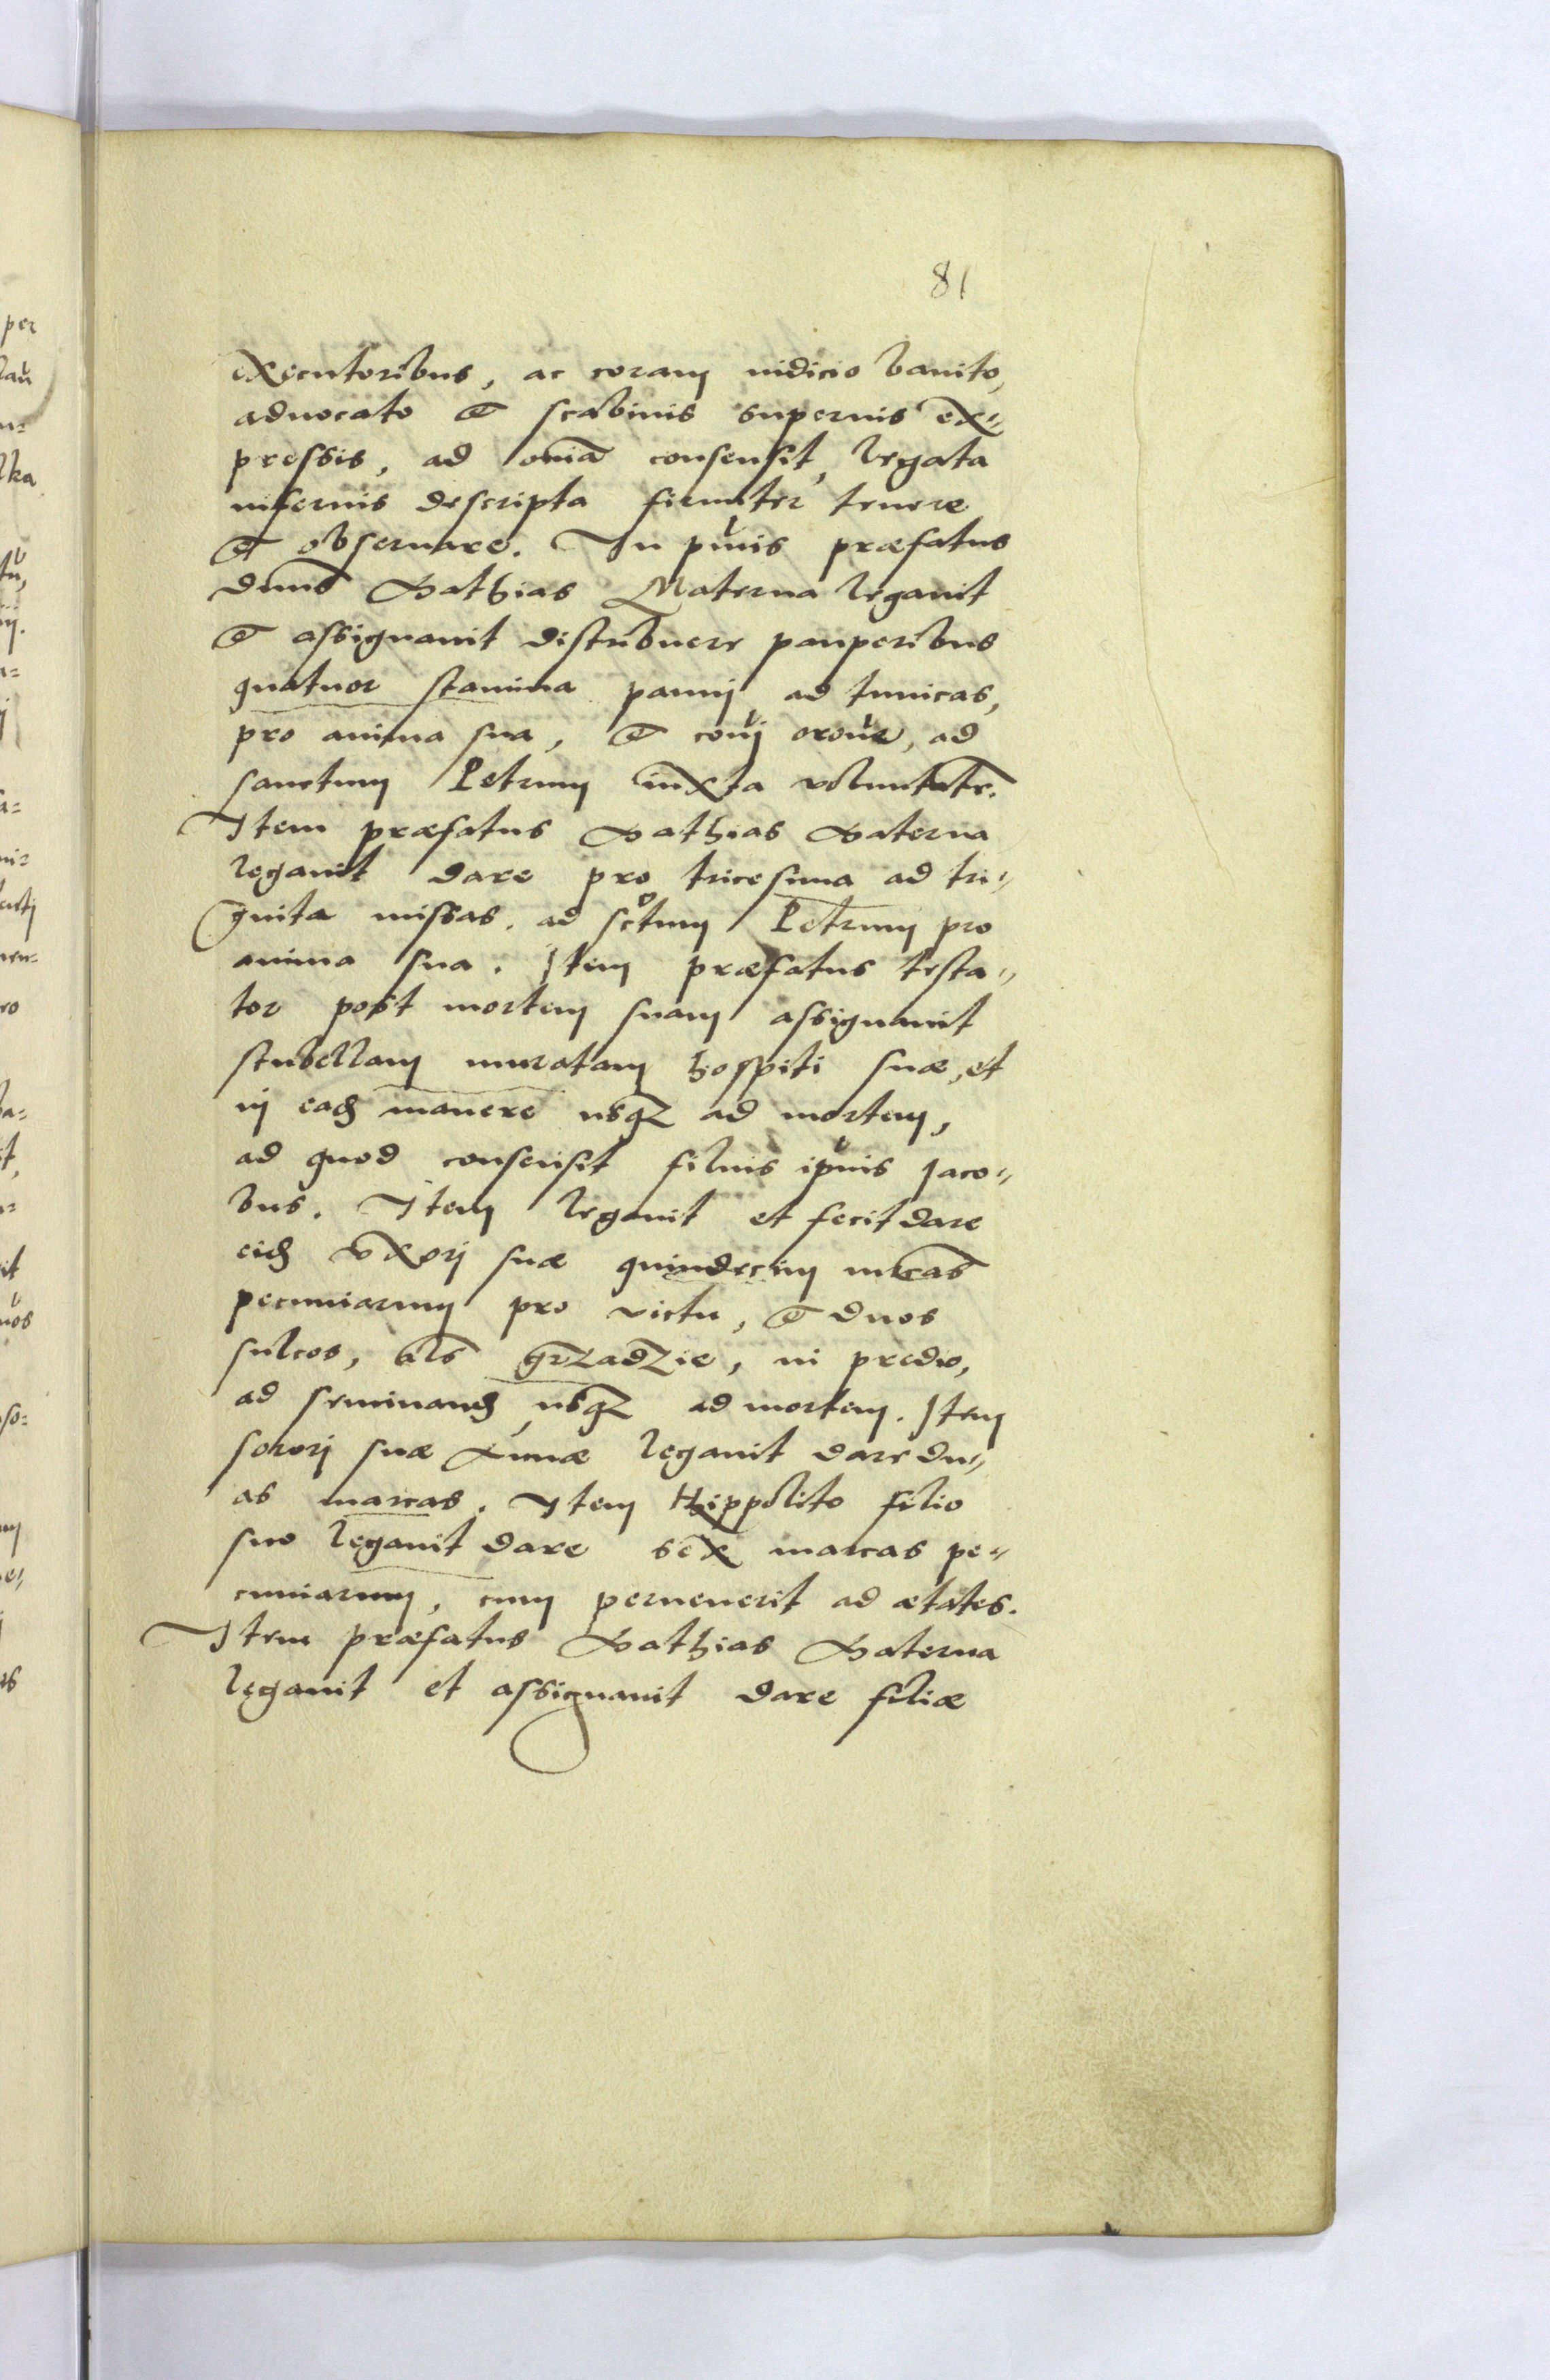 81
executoribus, ac coram iudicio banito,
aduocato et scabinis superius ex„
pressis, ad oma͞ consensit, legata
inferius descripta firmiter tenere
et obseruare. In pi̇mis præfatus
dn̄us Mathias Materna legauit
et assignauit distribuere pauperibus
quatuor stamina pannj ad tunicas,
pro anima sua, et ad
sanctum Petrum iuxta voluntatē.
Item præfatus Mathias Materna
legauit dare pro tricesima ad tri„
ginta missas. ad sctum Petrum pro
anima sua. Item præfatus testa„
tor post mortem suam assignauit
stubellam muratam hospiti suæ, et
in ead manere usqz ad mortem,
ad quod consensit filius ipius Jaco„
bus. Item legauit et fecit dare
eid vxorj suæ quindecim mrcas
pecuniarum pro victu, et duos
sulcos, als grzadzie, in predio,
ad seminand usqz ad mortem. Item
sororj suæ Annæ legauit dare du„
as marcas. Item Hippolito filio
suo legauit dare sex marcas pe„
cuniarum, cum peruenerit ad ætates.
Item præfatus Mathias Materna
legauit et assignauit dare filiæ